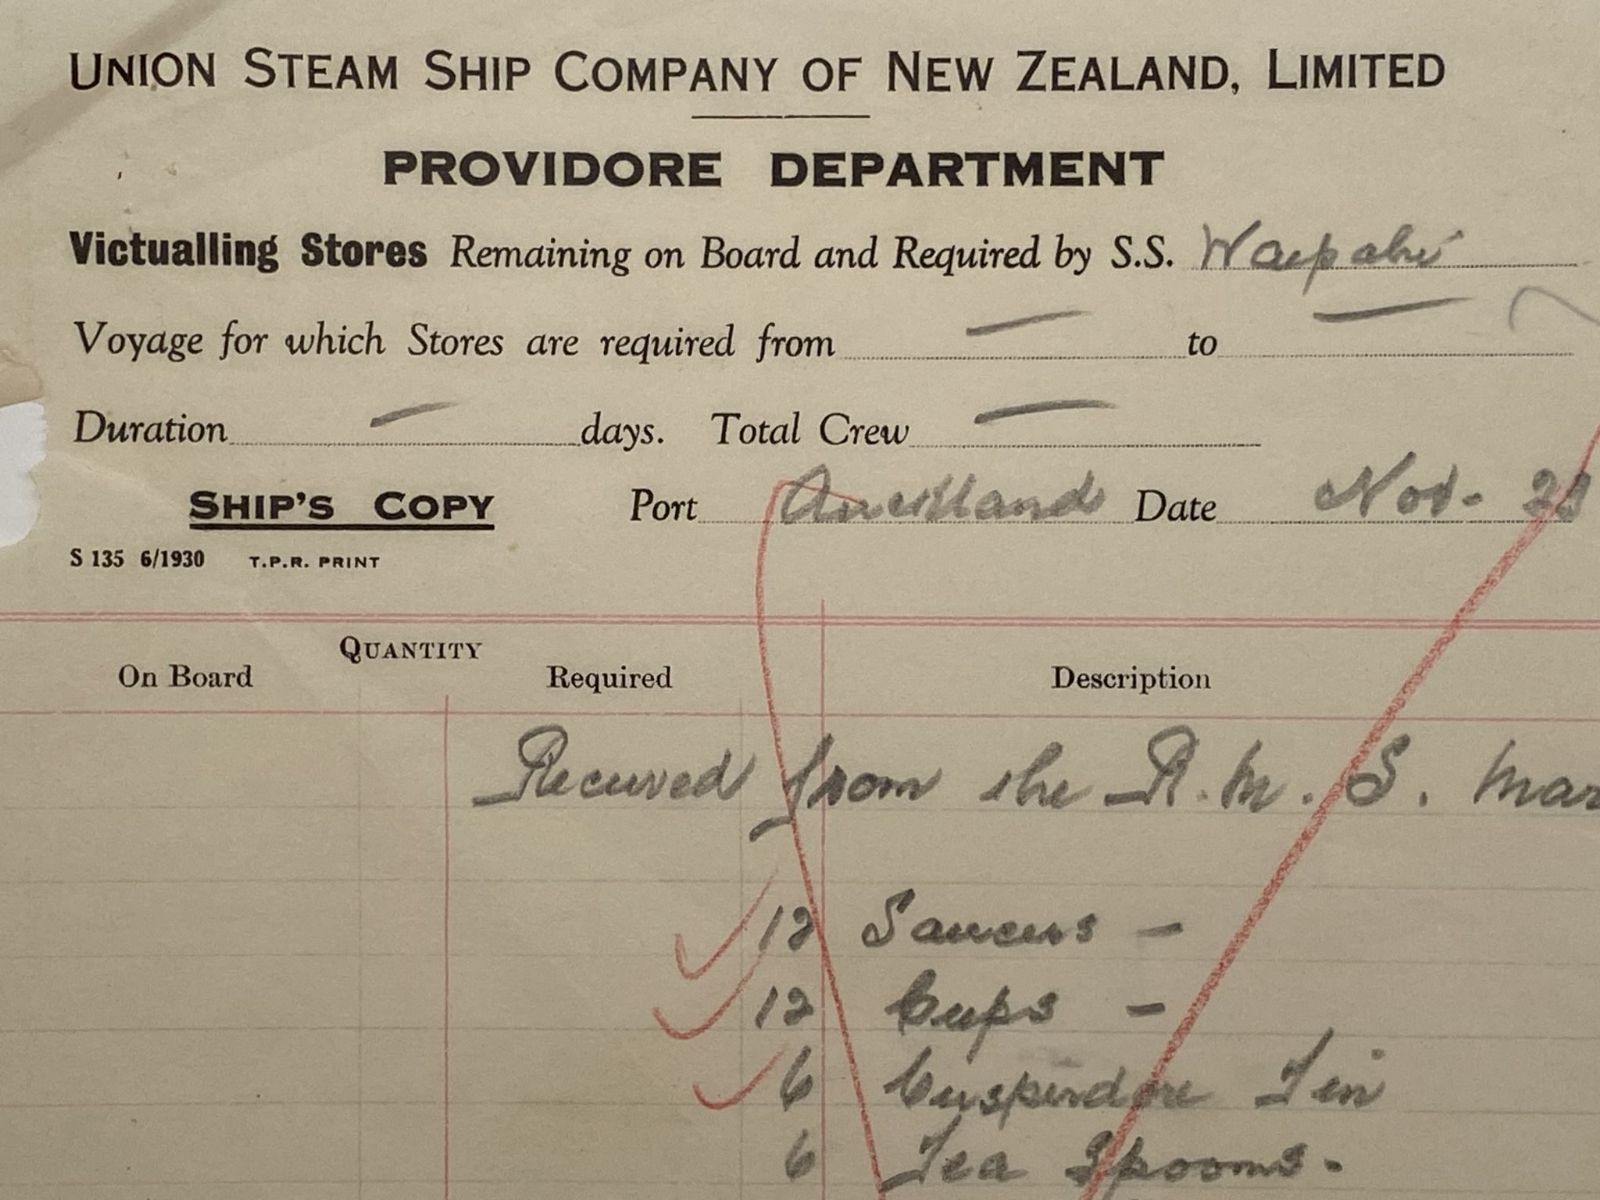 UNION STEAM SHIP COMPANY OF NEW ZEALAND, LIMITED
PROVIDORE DEPARTMENT
Victualling Stores Remaining on Board and Required by S.S. Waipahi
Voyage for which Stores are required from — to —
Duration — days. Total Crew —
SHIP'S COPY Port Auckland Date Nov. 23
S 135 6/1930 T.P.R. PRINT
QUANTITY
On Board Required Description
Received from the R.M.S. Mar
12 Saucers —
12 Cups —
6 Cuspirdore Tin
6 Tea Spoons.